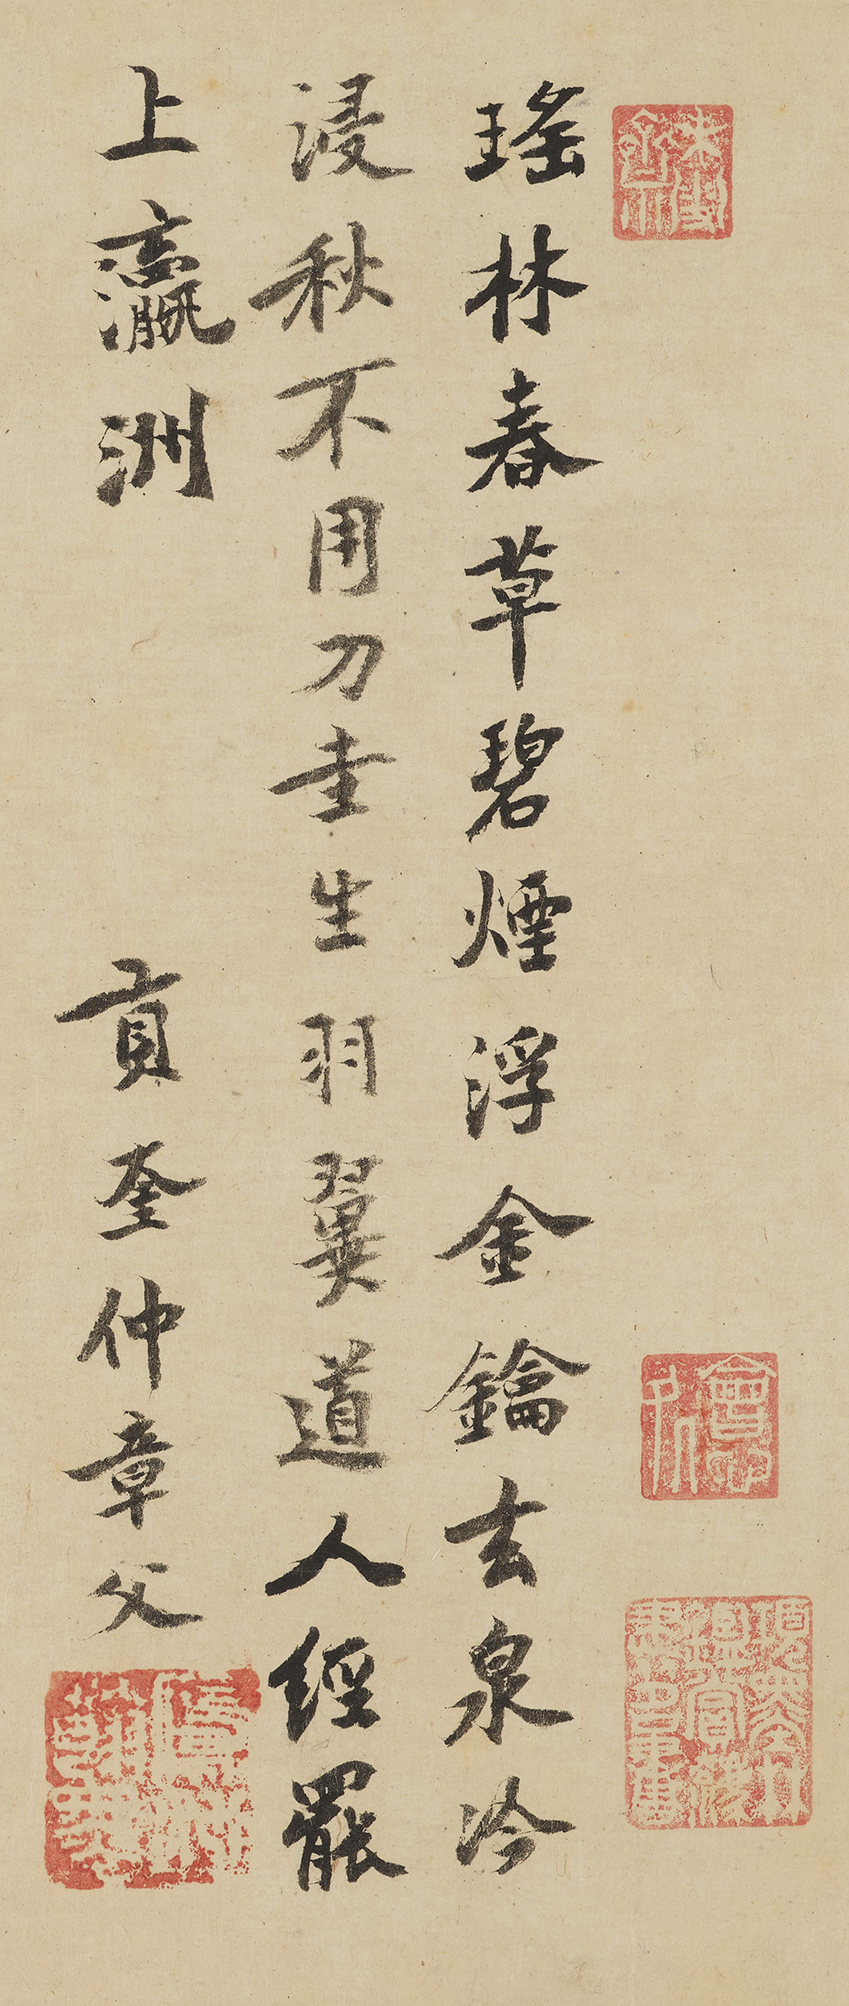 瑤林春草碧煙浮金鑰玄泉冷
浸秋不用刀圭生羽翼道人經罷
上瀛洲
貢奎仲章父